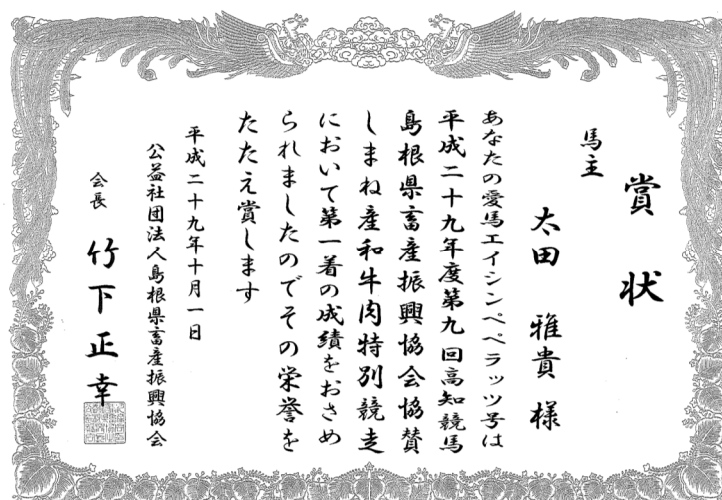 賞状
馬主
太田 雅貴 様
あなたの愛馬エイシンペペラッツ号は
平成二十九年度第九回高知競馬
島根県畜産振興協会協賛
しまね産和牛肉特別競走
において第一着の成績をおさめ
られましたのでその栄誉を
たたえ賞します
平成二十九年十月一日
公益社団法人島根県畜産振興協会
会長 竹下正幸